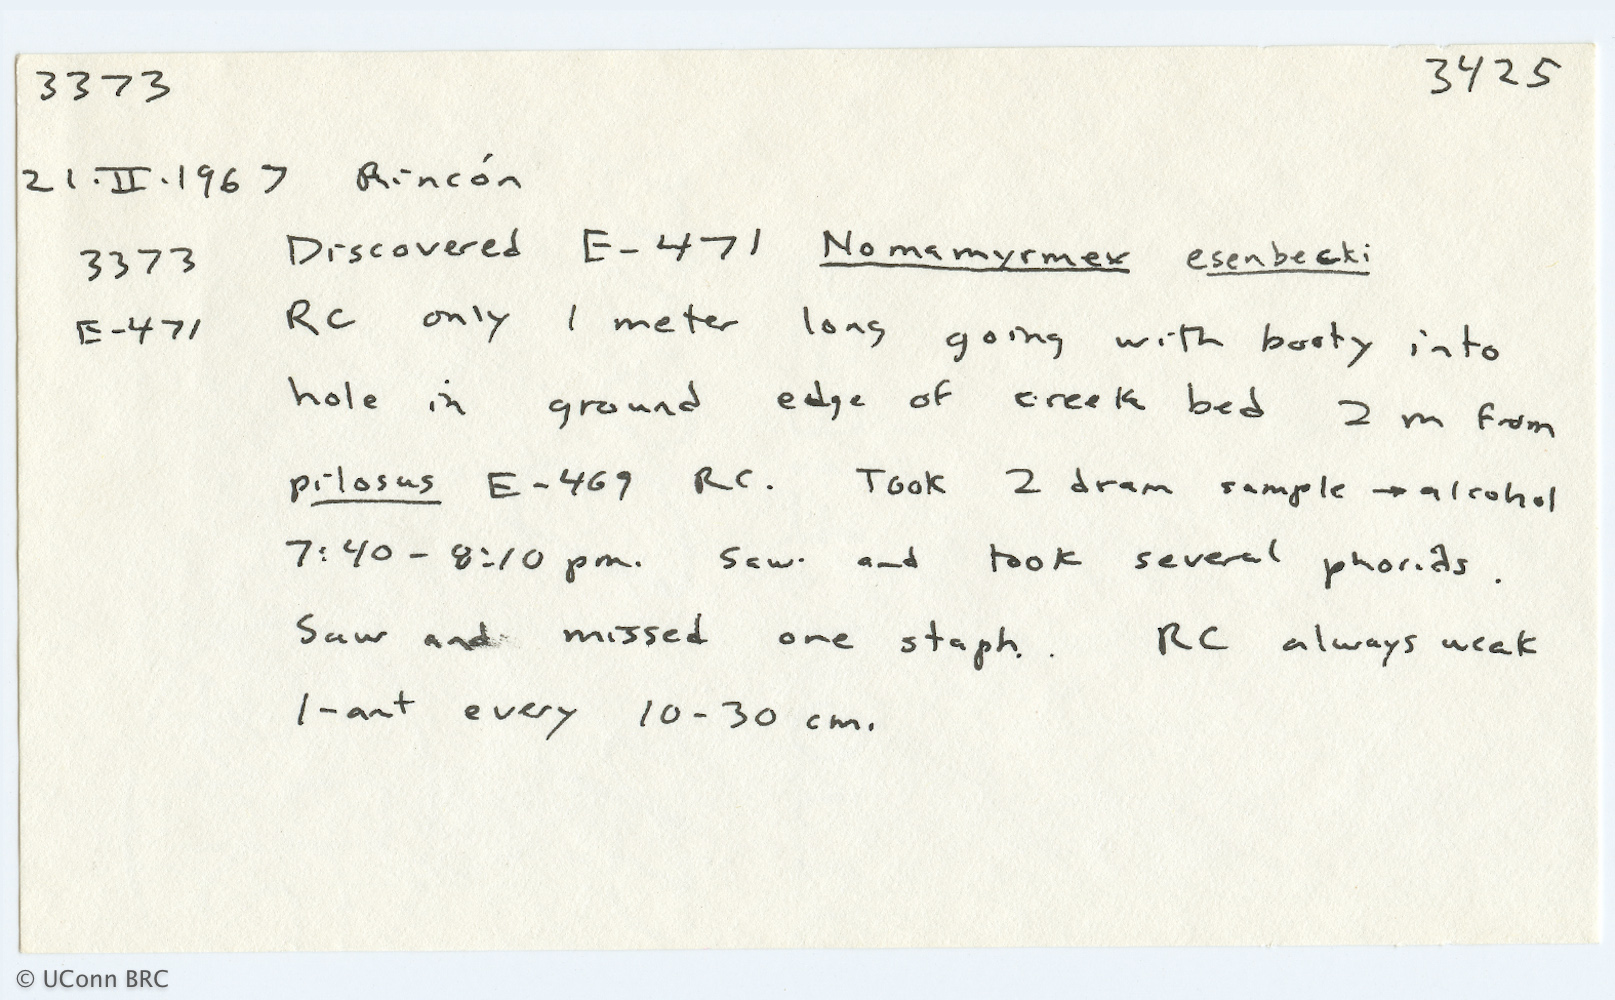 3373 3425
21.II.1967 Rincón
3373 Discovered E-471 Nomamyrmex esenbecki
E-471 RC only 1 meter long going with booty into
hole in ground edge of creek bed 2 m from
pilosus E-469 RC. Took 2 dram sample → alcohol
7:40-8:10 pm. Saw and took several phorids.
Saw and missed one staph. . RC always weak
1-ant every 10-30 cm.
© UConn BRC